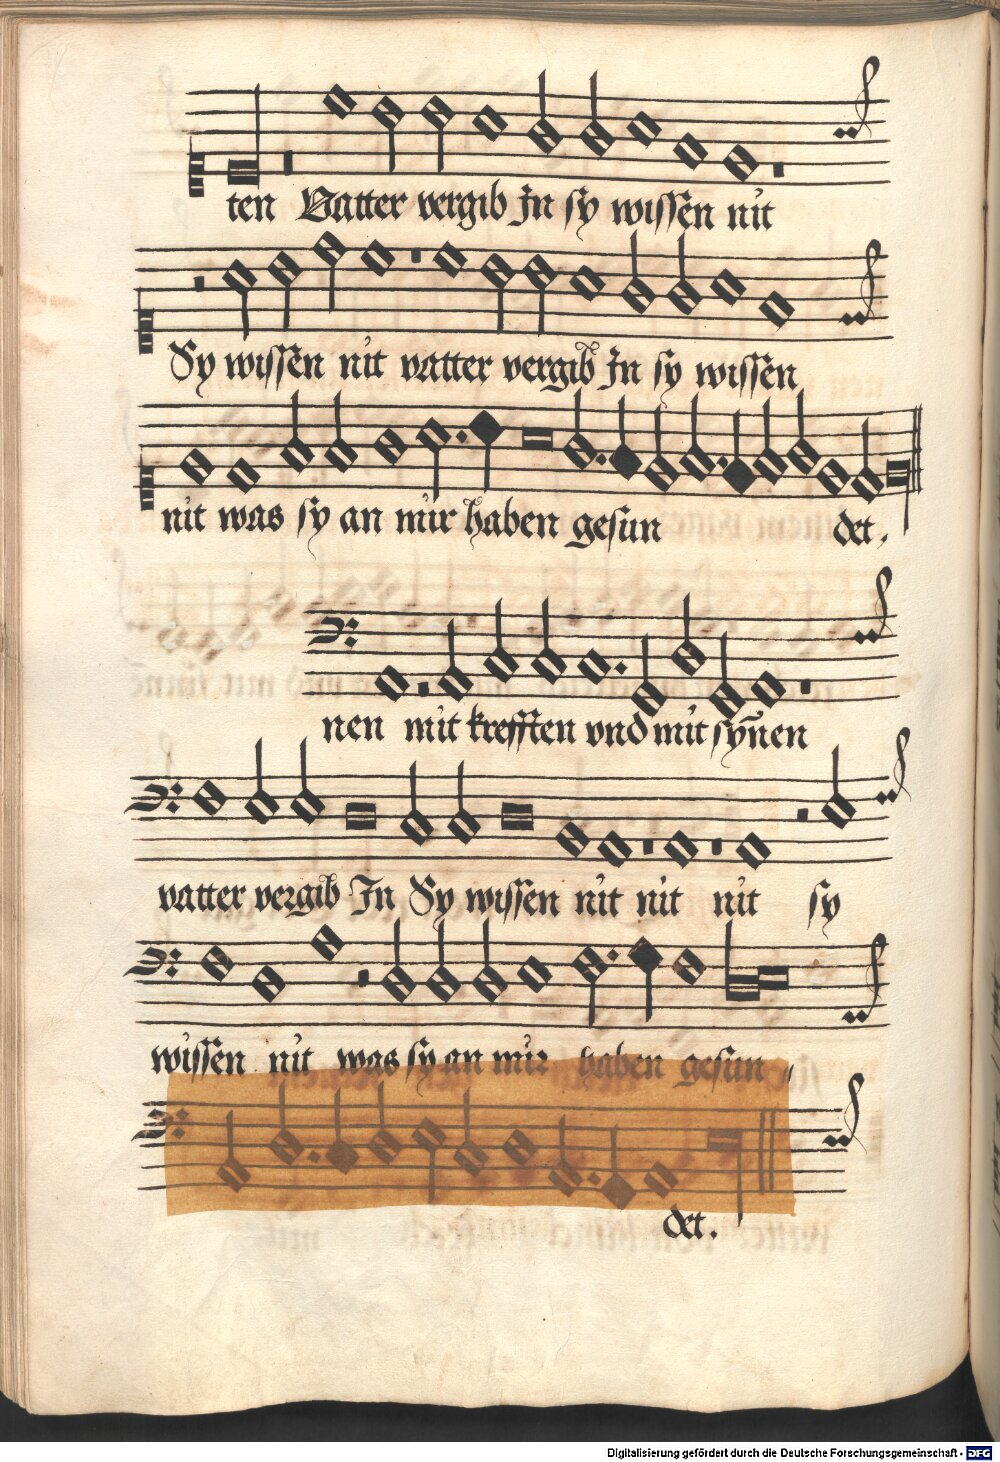 ten Vatter vergib Jn sy wissen nit
Sy wissen nit vatter vergib Jn sy wissen
nit was sy an mir haben gesun det.
nen mit krefften vnd mit sÿnen
vatter vergib In Sy wissen nit nit nit sy
wissen nit was sy an mir haben gesun „
det.
Digitalisierung gefördert durch die Deutsche Forschungsgemeinschaft - DFG